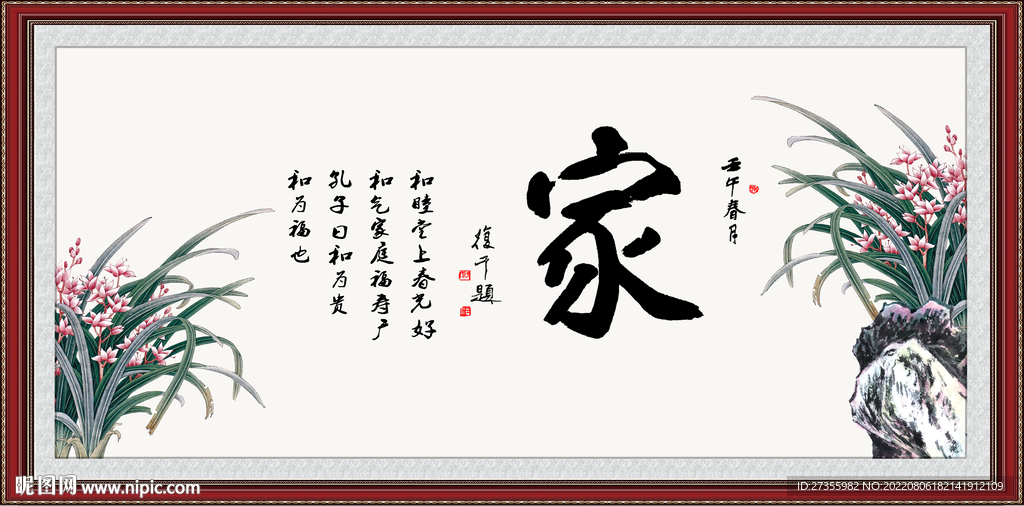 壬午春月
家
復平題
和睦堂上春光好
和气家庭福寿广
孔子曰和为贵
和为福也
昵图网 www.nipic.com
ID:27355982 NO:20220806182141912109